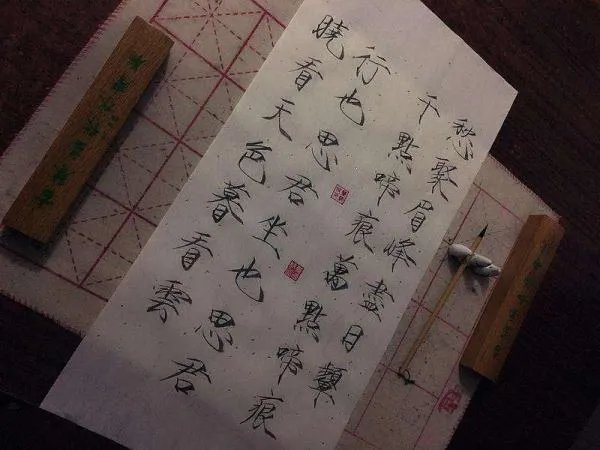 愁聚眉峰盡日顰
千點啼痕萬點啼痕
行也思君坐也思君
曉看天色暮看雲